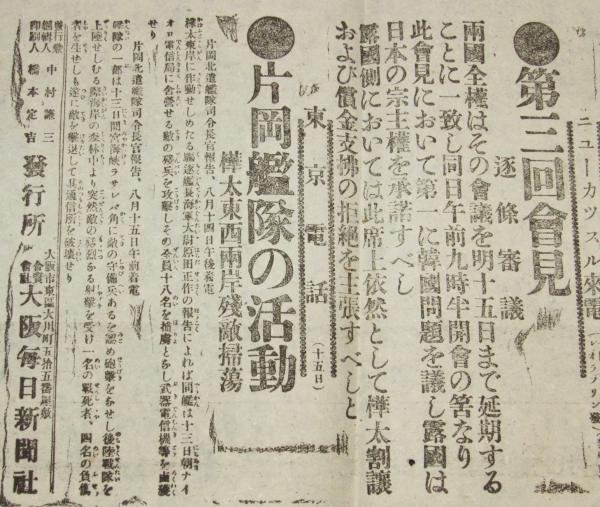 ニューカツスル來電
●第三回會見
逐條審議
兩國全權はその會議を明十五日まで延期する
ことに一致し同日午前九時半開會の筈なり
此會見において第一に韓國問題を議し露國は
日本の宗主權を承諾すべし
露國側においては此席上依然として樺太割讓
および償金支拂の拒絶を主張すべしと
東京電話（十五日）
●片岡艦隊の活動
樺太東西兩岸殘敵掃蕩
片岡北遣艦隊司令長官報告、八月十四日午後着電
樺太東岸に作動せしめたる驅逐艦長海軍大尉原田正作の報告によれば同艦は十三日朝ナイ
オロ電信局に舍營せる敵の殘兵を攻擊しその全員十八名を捕虜とし武器電信機等を鹵獲
せり
片岡北遣艦隊司令長官報告、八月十五日午前着電
艦隊の一部は十三日間宮海峽ラサレバ角に敵の守備兵あるを認め砲擊をなせし後陸戰隊を
上陸せしむる際海岸の森林中より突然敵の猛烈なる射擊を受け一名の戰死者、四名の負傷
者を生ぜしも遂に敵を擊退して其通信所を破壞せり
發行兼編輯人 中村謙三
印刷人 橋本定吉
發行所
大阪市東區大川町五拾五番屋敷
合資會社 大阪每日新聞社